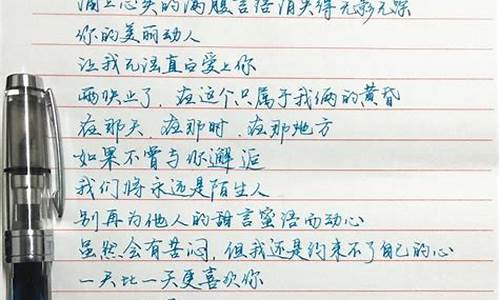 涌上心头的满腹言语消失得无影无踪
你的美丽动人
让我无语直白爱上你
雨快止了，在这个只属于我俩的黄昏
在那天，在那时，在那地方
如果不曾与你邂逅
我们将永远是陌生人
别再为他人的甜言蜜语而动心
虽然会有苦闷，但我还是约束不了自己的心
一天比一天更喜欢你